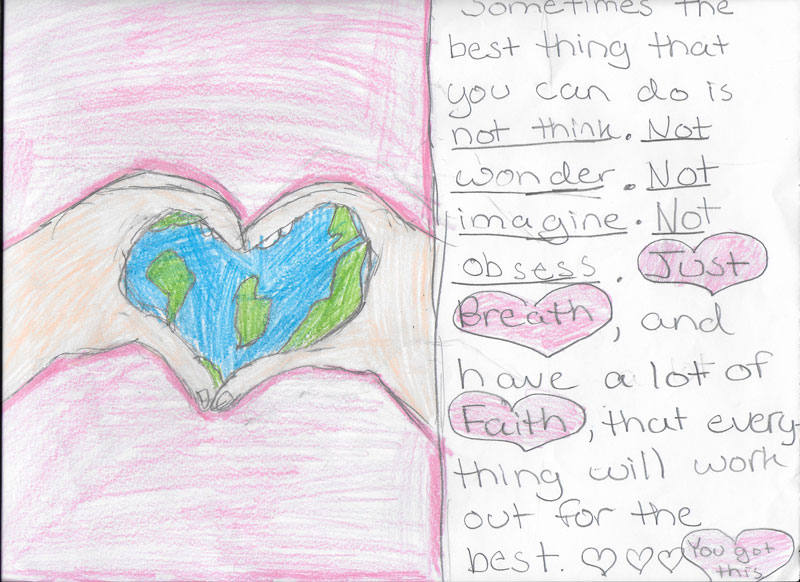 Sometimes the
best thing that
you can do is
not think. Not
wonder. Not
imagine. Not
obsess. Just
Breath, and
have a lot of
Faith, that every-
thing will work
out for the
best. ♡♡♡ You got
this